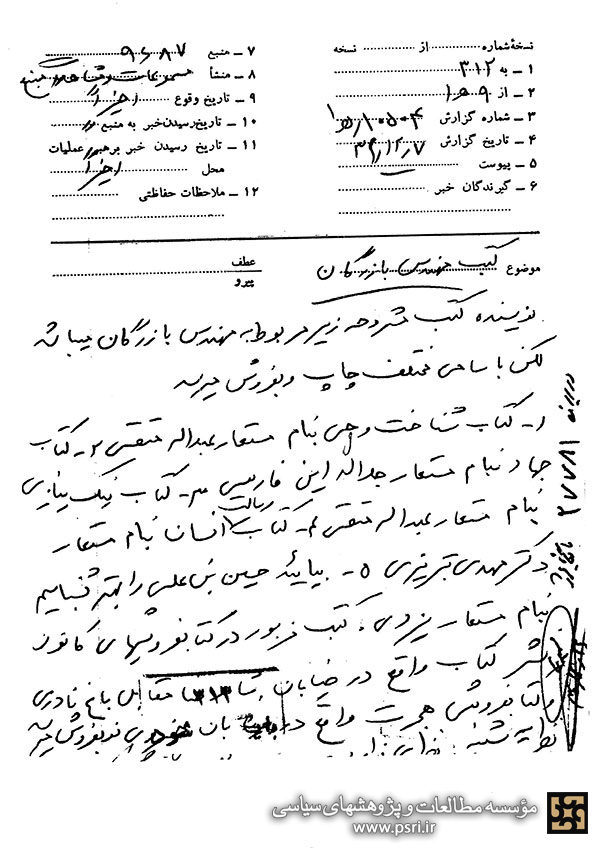 نسخهٔ شماره ........ از ........ نسخه
۱ ـ به ۳۱۲
۲ ـ از
۳ ـ شماره گزارش
۴ ـ تاریخ گزارش
۵ ـ پیوست
۶ ـ گیرندگان خبر
۷ ـ منبع ۹۶۸۷
۸ ـ منشأ
۹ ـ تاریخ وقوع اخیراً
۱۰ ـ تاریخ رسیدن خبر به منبع
۱۱ ـ تاریخ رسیدن خبر برهبر عملیات
محل اخیراً
۱۲ ـ ملاحظات حفاظتی
موضوع کتب مهندس بازرگان
عطف
پیرو
نویسنده کتب مشروحه زیر مربوط به مهندس بازرگان میباشد
لکن با اسامی مختلف چاپ و بفروش میرسد
۱ـ کتاب شناخت وحی بنام مستعار عبداله متقی ۲ـ کتاب
جهاد بنام مستعار جداله این فارسی ۳ـ کتاب نیک نیازی
بنام مستعار عبداله متقی ۴ـ کتاب رسالت انسان بنام مستعار
دکتر مهدی تبریزی ۵ـ بیائید حسین بن علی را بهتر بشناسیم
بنام مستعار یزدی. کتب مزبور در کتابفروشیهای کانون
نشر کتاب واقع در خیابان شاه مقابل باغ نادری
و کتابفروشی هجرت واقع در بان نو بفروش میرسد
نظریه شنبه
مؤسسه مطالعات و پژوهشهای سیاسی
www.psri.ir